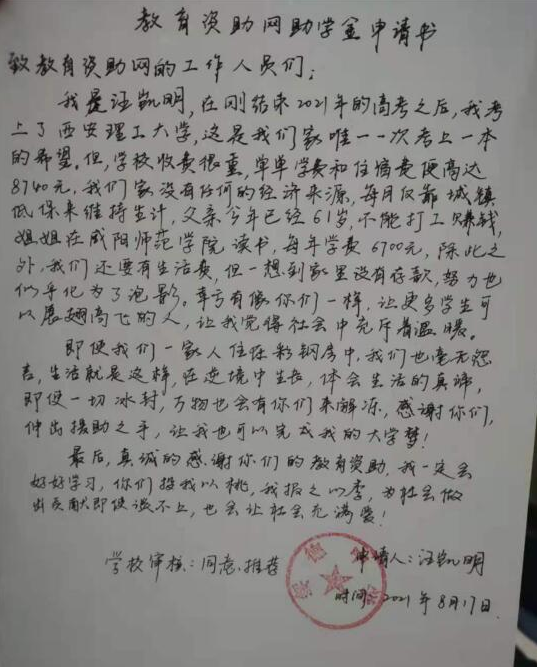 教育资助网助学金申请书
致教育资助网的工作人员们:
我是汪凯明,在刚结束2021年的高考之后,我考
上了西安理工大学,这是我们家唯一一次考上一本
的希望。但,学校收费很重,单单学费和住宿费便高达
8740元,我们家没有任何的经济来源,每月仅靠城镇
低保来维持生计,父亲今年已经61岁,不能打工赚钱,
姐姐在咸阳师范学院读书,每年学费6700元,除此之
外,我们还要有生活费,但一想到家里没有存款,努力也
似乎化为了泡影。幸亏有像你们一样,让更多学生可
以展翅高飞的人,让我觉得社会中充斥着温暖。
即便我们一家人住在彩钢房中,我们也毫无怨
言,生活就是这样,在逆境中生长,体会生活的真谛,
即便一切冰封,万物也会有你们来解冻,感谢你们,
伸出援助之手,让我也可以完成我的大学梦!
最后,真诚的感谢你们的教育资助,我一定会
好好学习,你们投我以桃,我报之以李,为社会做
出贡献即使谈不上,也会让社会充满爱!
学校审核:同意推荐
申请人:汪凯明
时间:2021年8月17日